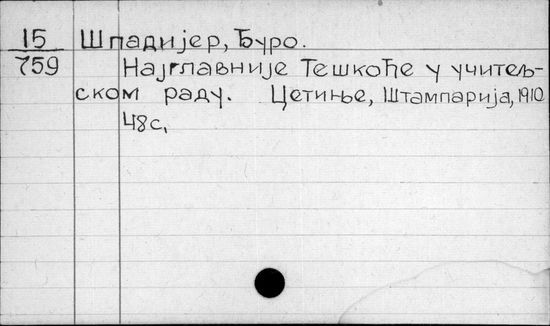 15 Шпадијер, Ђуро.
759 Најглавније Тешкоће у учитељ-
ском раду. Цетиње, Штампарија, 1910
48с,